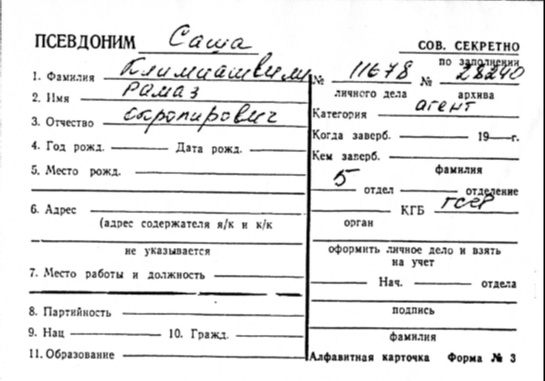 ПСЕВДОНИМ Саша
СОВ. СЕКРЕТНО
по заполнении
1. Фамилия Климиашвили
2. Имя Рамаз
3. Отчество
4. Год рожд. Дата рожд.
5. Место рожд.
6. Адрес
(адрес содержателя я/к и к/к
не указывается
7. Место работы и должность
8. Партийность
9. Нац 10. Гражд.
11. Образование
№ 11678 № 28240
личного дела архива
Категория агент
Когда заверб. 19—г.
Кем заверб.
фамилия
5 отдел отделение
КГБ ГССР
орган
оформить личное дело и взять
на учет
Нач. отдела
подпись
фамилия
Алфавитная карточка Форма № 3